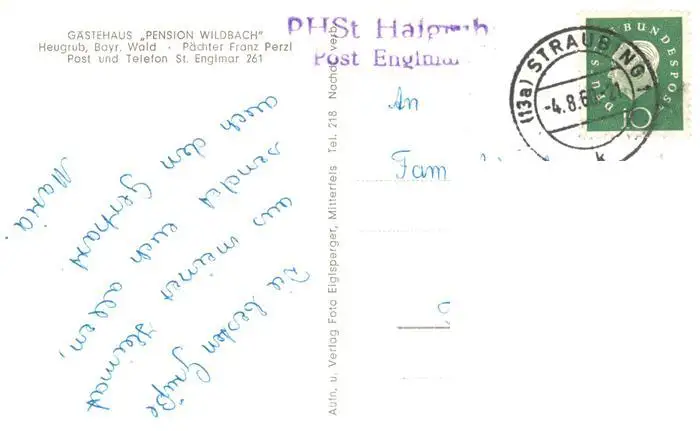 GÄSTEHAUS „PENSION WILDBACH"
Heugrub, Bayr. Wald · Pächter Franz Perzl
Post und Telefon St. Englmar 261
PHSt Haigrub
Post Englmar
(13a) STRAUBING 1
-4.8.60
k
DEUTSCHE BUNDESPOST
10
An
Fam
Die besten Grüße
aus meiner Heimat
sendet euch allen,
auch den Gerhard
Maria.
Aufn. u. Verlag Foto Eiglsperger, Mitterfels Tel. 218 Nachdr. verb.